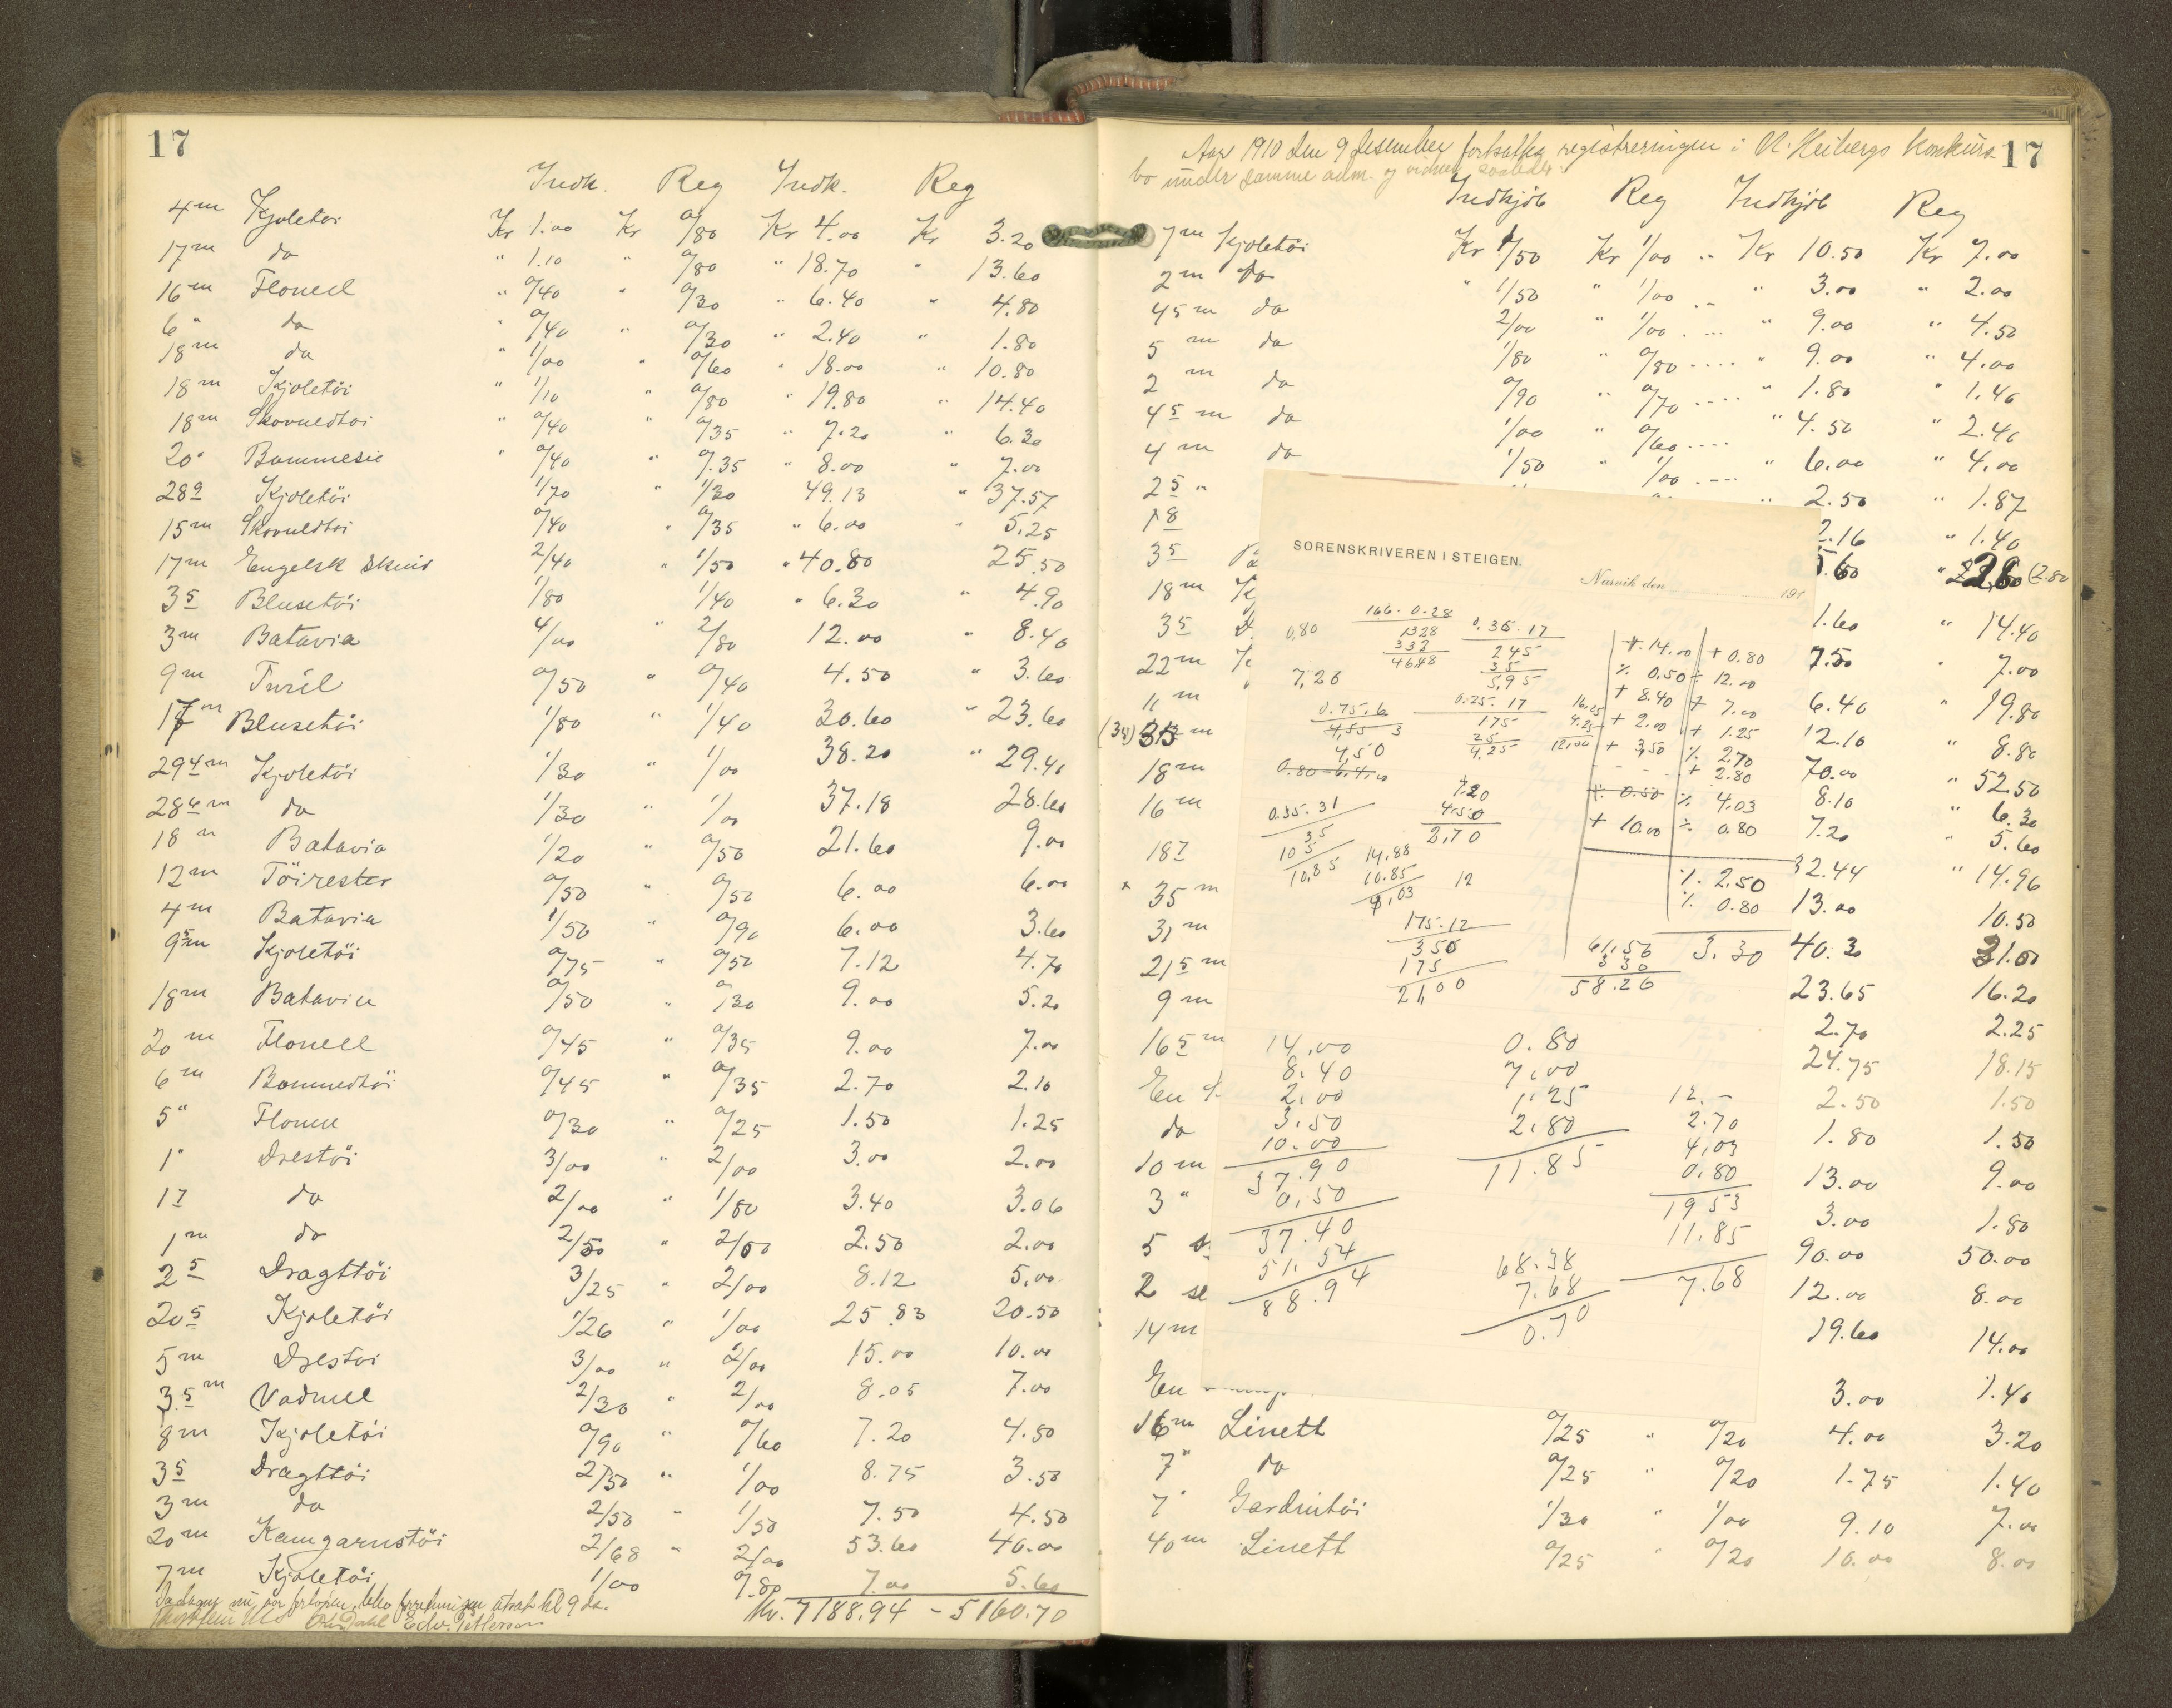 17
Indk. Reg Indk. Reg
4m Kjoletøi Kr 1.00 Kr 0/80 Kr 4.00 Kr 3.20
17m do " 1.10 " 0/80 " 18.70 " 13.60
16m Flonell " 0/40 " 0/30 " 6.40 " 4.80
6" do " 0/40 " 0/30 " 2.40 " 1.80
18m do " 1/00 " 0/60 " 18.00 " 10.80
18m Kjoletöi " 1/10 " 0/80 " 19.80 " 14.40
18m " 0/40 " 0/35 " 7.20 " 6.30
20" Bommesie " 0/40 " 0.35 " 8.00 " 7.00
289 Kjoletöi 1/70 " 1/30 49.13 " 37.57
15m 0/40 " 0/35 " 6.00 5.25
17m Engelsk Skind 2/40 " 1/50 " 40.80 25.50
35 Blusetöi 1/80 1/40 " 6.30 " 4.90
3m Batavia 4/00 " 2/80 12.00 " 8.40
9m Tvill 0/50 " 0/40 4.50 " 3.60
17m Blusetöi 1/80 " 1/40 30.60 " 23.60
294m Kjoletöi 1/30 " 1/00 38.20 " 29.40
286m do 1/30 " 1/00 37.18 28.60
18m Batavia 1/20 " 0/50 21.60 9.00
12m Töirester 0/50 " 0/50 6.00 6.00
4m Batavia 1/50 " 0/90 6.00 3.60
95m Kjoletöi 0/75 " 0/50 7.12 4.70
18m Batavia 0/50 " 0/30 9.00 5.20
20m Flonell 0/45 " 0/35 9.00 7.00
6m Bommedtöi 0/45 " 0/35 2.70 2.10
5" Flonell 0/30 " 0/25 1.50 1.25
1" Drestöi 3/00 " 2/00 3.00 2.00
17 do 2/00 " 1/80 3.40 3.06
1m do 2/50 " 2/00 2.50 2.00
25 Dragttöi 3/25 " 2/00 8.12 5.00
205 Kjoletöi 1/26 " 1/00 25.83 20.50
5m Drestoi 3/00 " 2/00 15.00 10.00
3.5m Vadmel 2/30 " 2/00 8.05 7.00
8m Kjoletöi 0/90 " 0/60 7.20 4.50
35 Dragttöi 2/50 " 1/00 8.75 3.50
3m do 2/50 " 1/50 7.50 4.50
20m Kamgarnstöi 2/68 " 2/00 53.60 40.00
7m Kjoletöi 1/00 0.80 7.00 5.60
Kr. 7188.94 - 5160.70
Edv. Pettersen
17
Aar 1910 den 9 desember fortsattes registreringen i N. Heibergs Konkurs-
bo under samme adm. og vidner saaledes:
Indkjöb Reg Indkjöb Reg
7m Kjoletöi Kr 1/50 Kr 1/00 " Kr 10.50 Kr 7.00
2m do " 1/50 " 1/00 " 3.00 " 2.00
45m do 2/00 " 1/00 " 9.00 " 4.50
5m do 1/80 " 0/80 " 9.00 " 4.00
2m do 0/90 " 0/70 " 1.80 " 1.40
45m do 1/00 " 0/60 " 4.50 " 2.40
4m do 1/50 " 1/00 " 6.00 " 4.00
25 " " 2.50 " 1.87
18 2.16 " 1.40
35 .60 (2.80
18m 1.60 " 14.40
35 7.50 " 7.00
22m 6.40 " 19.80
11m 12.10 " 8.80
(34) 35m 70.00 " 52.50
18m 8.10 " 6.30
16m 7.20 " 5.60
187 32.44 " 14.96
x 35m 13.00 10.50
31m 40.30 31.00
215m 23.65 16.20
9m 2.70 2.25
165m 24.75 18.15
En 2.50 1.50
do 1.80 1.50
10m 13.00 9.00
3" 3.00 1.80
5 90.00 50.00
2 12.00 8.00
14m 19.60 14.00
En 3.00 1.40
16m Linett 0/25 " 0/20 4.00 3.20
7" do 0/25 " 0/20 1.75 1.40
7" Gardintöi 1/30 " 1/00 9.10 7.00
40m Linett 0/25 " 0/20 10.00 8.00
SORENSKRIVEREN I STEIGEN.
Narvik den 191
0,80
166. 0.28
1328
332
4648
0.35.17
245
35
5,95
7,26
0.75.6
4,55 3
4,50
0.25.17
175
25
4,25
16.25
4.25
12,00
0.80 - 6.4.00
7.20
4.50
2,70
0.35.31
35
105
10,85
14.88
10.85
4,03
12
175.12
350
175
21,00
+ 14.00 + 0.80
% 0.50 % 12.00
+ 8.40 + 7.00
+ 2.00 + 1.25
+ 3,50 % 2.70
+ 2.80
% 0.50 % 4.03
+ 10.00 % 0.80
% 2.50
% 0.80
3.30
61,56
3 30
58.26
14,00
8.40
2,00
3.50
10.00
37.90
0,50
37.40
51.54
88.94
0.80
7,00
1.25
2,80
11.85
12.-
2.70
4,03
0,80
19 53
11.85
7.68
68.38
7.68
0.70